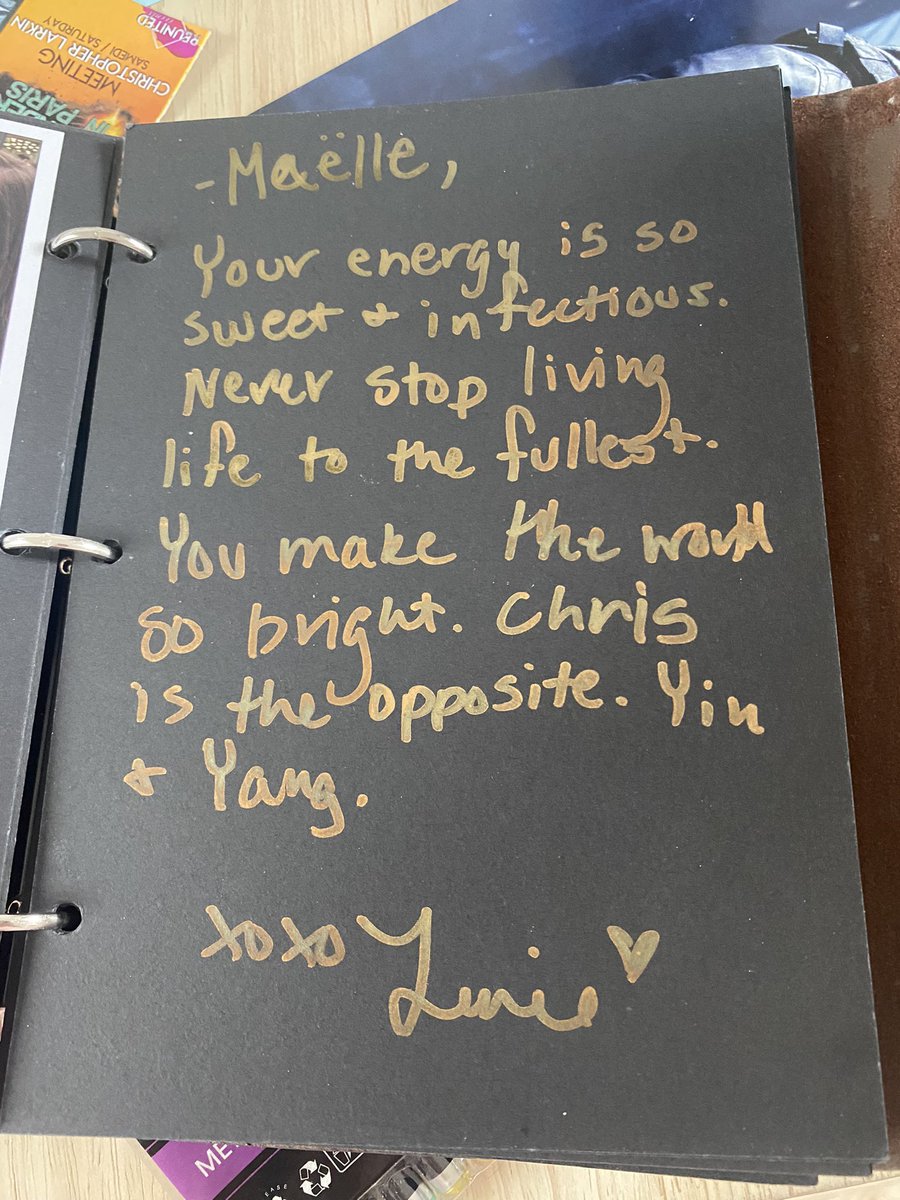 REUNITED
MEETING
CHRISTOPHER LARKIN
SAMEDI / SATURDAY
IN PARIS
-Maëlle,
Your energy is so
sweet + infectious.
Never stop living
life to the fullest.
You make the world
so bright. Chris
is the opposite. Yin
+ Yang.
xoxo